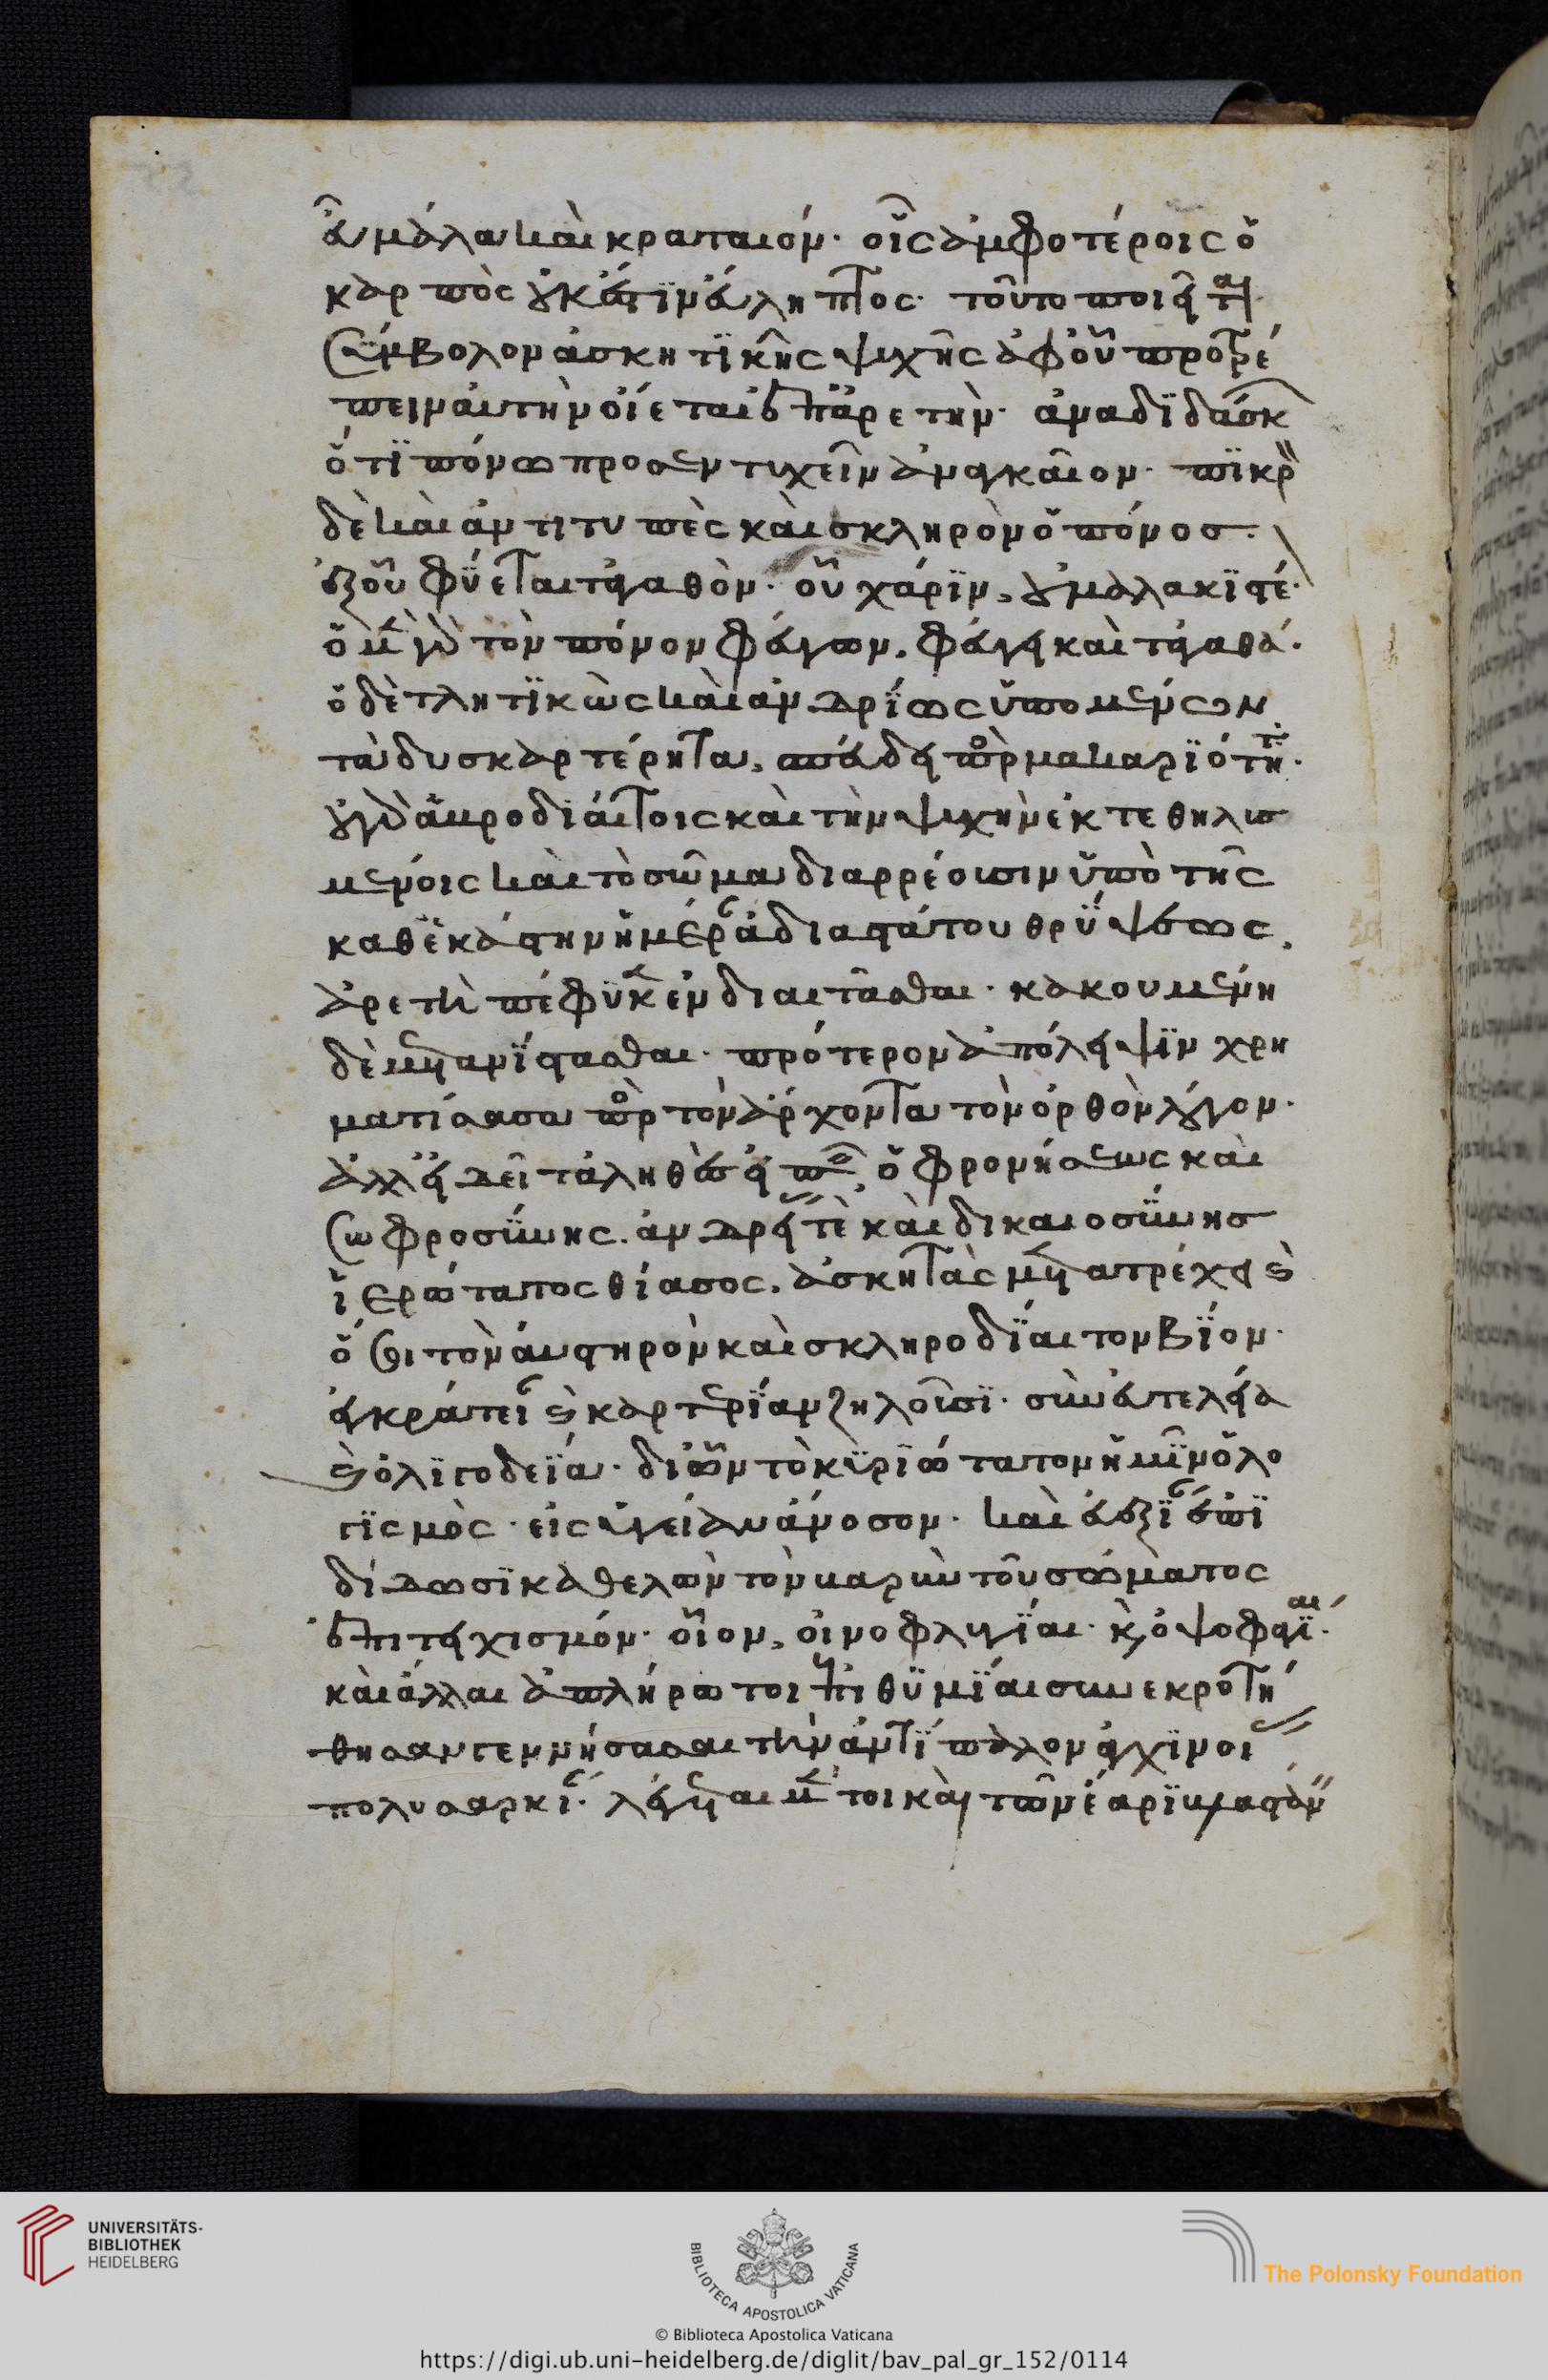 εὖ μάλα καὶ κραταιόν· οἷς ἀμφοτέροις ὁ
καρπὸς ἐγκατειλημπτος· τοῦτο ποιεῖται
σύμβολον ἀσκητικῆς ψυχῆς ἀφ' οὗ προτρέ
πειν αὐτὴν οἴεται ἐπ' ἀρετὴν· ἀναδιδάσκ
ὅτι πόνω προσεντυχεῖν ἀναγκαῖον· πικρὸν
δὲ καὶ ἀντιτυπὲς καὶ σκληρὸν ὁ πόνος·
ἐξ οὗ φύεται τἀγαθὸν· οὗ χάριν, οὐ μαλακιστέ·
ὁ μὲν γὰρ τὸν πόνον φεύγων, φεύγει καὶ τἀγαθά·
ὁ δὲ τλητικῶς καὶ ἀνδρίως ὑπομένων
τὰ δυσκαρτέρητα, σπεύδει πρὸς μακαριότητ·
οὐ γὰρ ἁβροδιαίτοις καὶ τὴν ψυχὴν ἐκτεθηλυσ
μένοις καὶ τὸ σῶμα διαρρέουσιν ὑπὸ τῆς
καθ' ἑκάστην ἡμέραν ἀδιαστάτου θρύψεως,
ἀρετὴ πέφυκεν ἐνδιαιτᾶσθαι· κακουμένη
δὲ μετανίστασθαι· πρότερον ἀπόλειψιν χρη
ματίσασα πρὸς τὸν ἄρχοντα τὸν ὀρθὸν λόγον·
ἀλλ' εἰ δεῖ τἀληθὲς εἰπεῖν, ὁ φρονήσεως καὶ
σωφροσύνης· ἀνδρείας τὲ καὶ δικαιοσύνης
ἱερώτατος θίασος, ἀσκητὰς μετατρέχει καὶ
ὅσοι τὸν αὐστηρὸν καὶ σκληροδίαιτον βίον·
ἐγκράτειαν καὶ καρτερίαν ζηλοῦσι· σὺν εὐτελεία
καὶ ὀλιγοδεΐα· δι' ὧν τὸ κυριώτατον ἡμῖν ὁ λο
γισμὸς· εἰς ὑγείαν ἄνοσον· καὶ εὐεξίαν ἐπι
δίδωσι καθελὼν τὸν βαρὺν τοῦ σώματος
ἐπιτειχισμόν· οἷον, οἰνοφλυγίαι· καὶ ὀψοφαγίαι·
καὶ ἄλλαι ἀπλήρωτοι ἐπιθυμίαι συνεκροτή
θησαν γεννήσασαι τὴν ἀντίπαλον ἀγχινοίας
πολυσαρκίαν· λέγεται μέν τοι καὶ τῶν ἔαρι βλαστάν
UNIVERSITÄTS-
BIBLIOTHEK
HEIDELBERG
BIBLIOTECA APOSTOLICA VATICANA
The Polonsky Foundation
© Biblioteca Apostolica Vaticana
https://digi.ub.uni-heidelberg.de/diglit/bav_pal_gr_152/0114